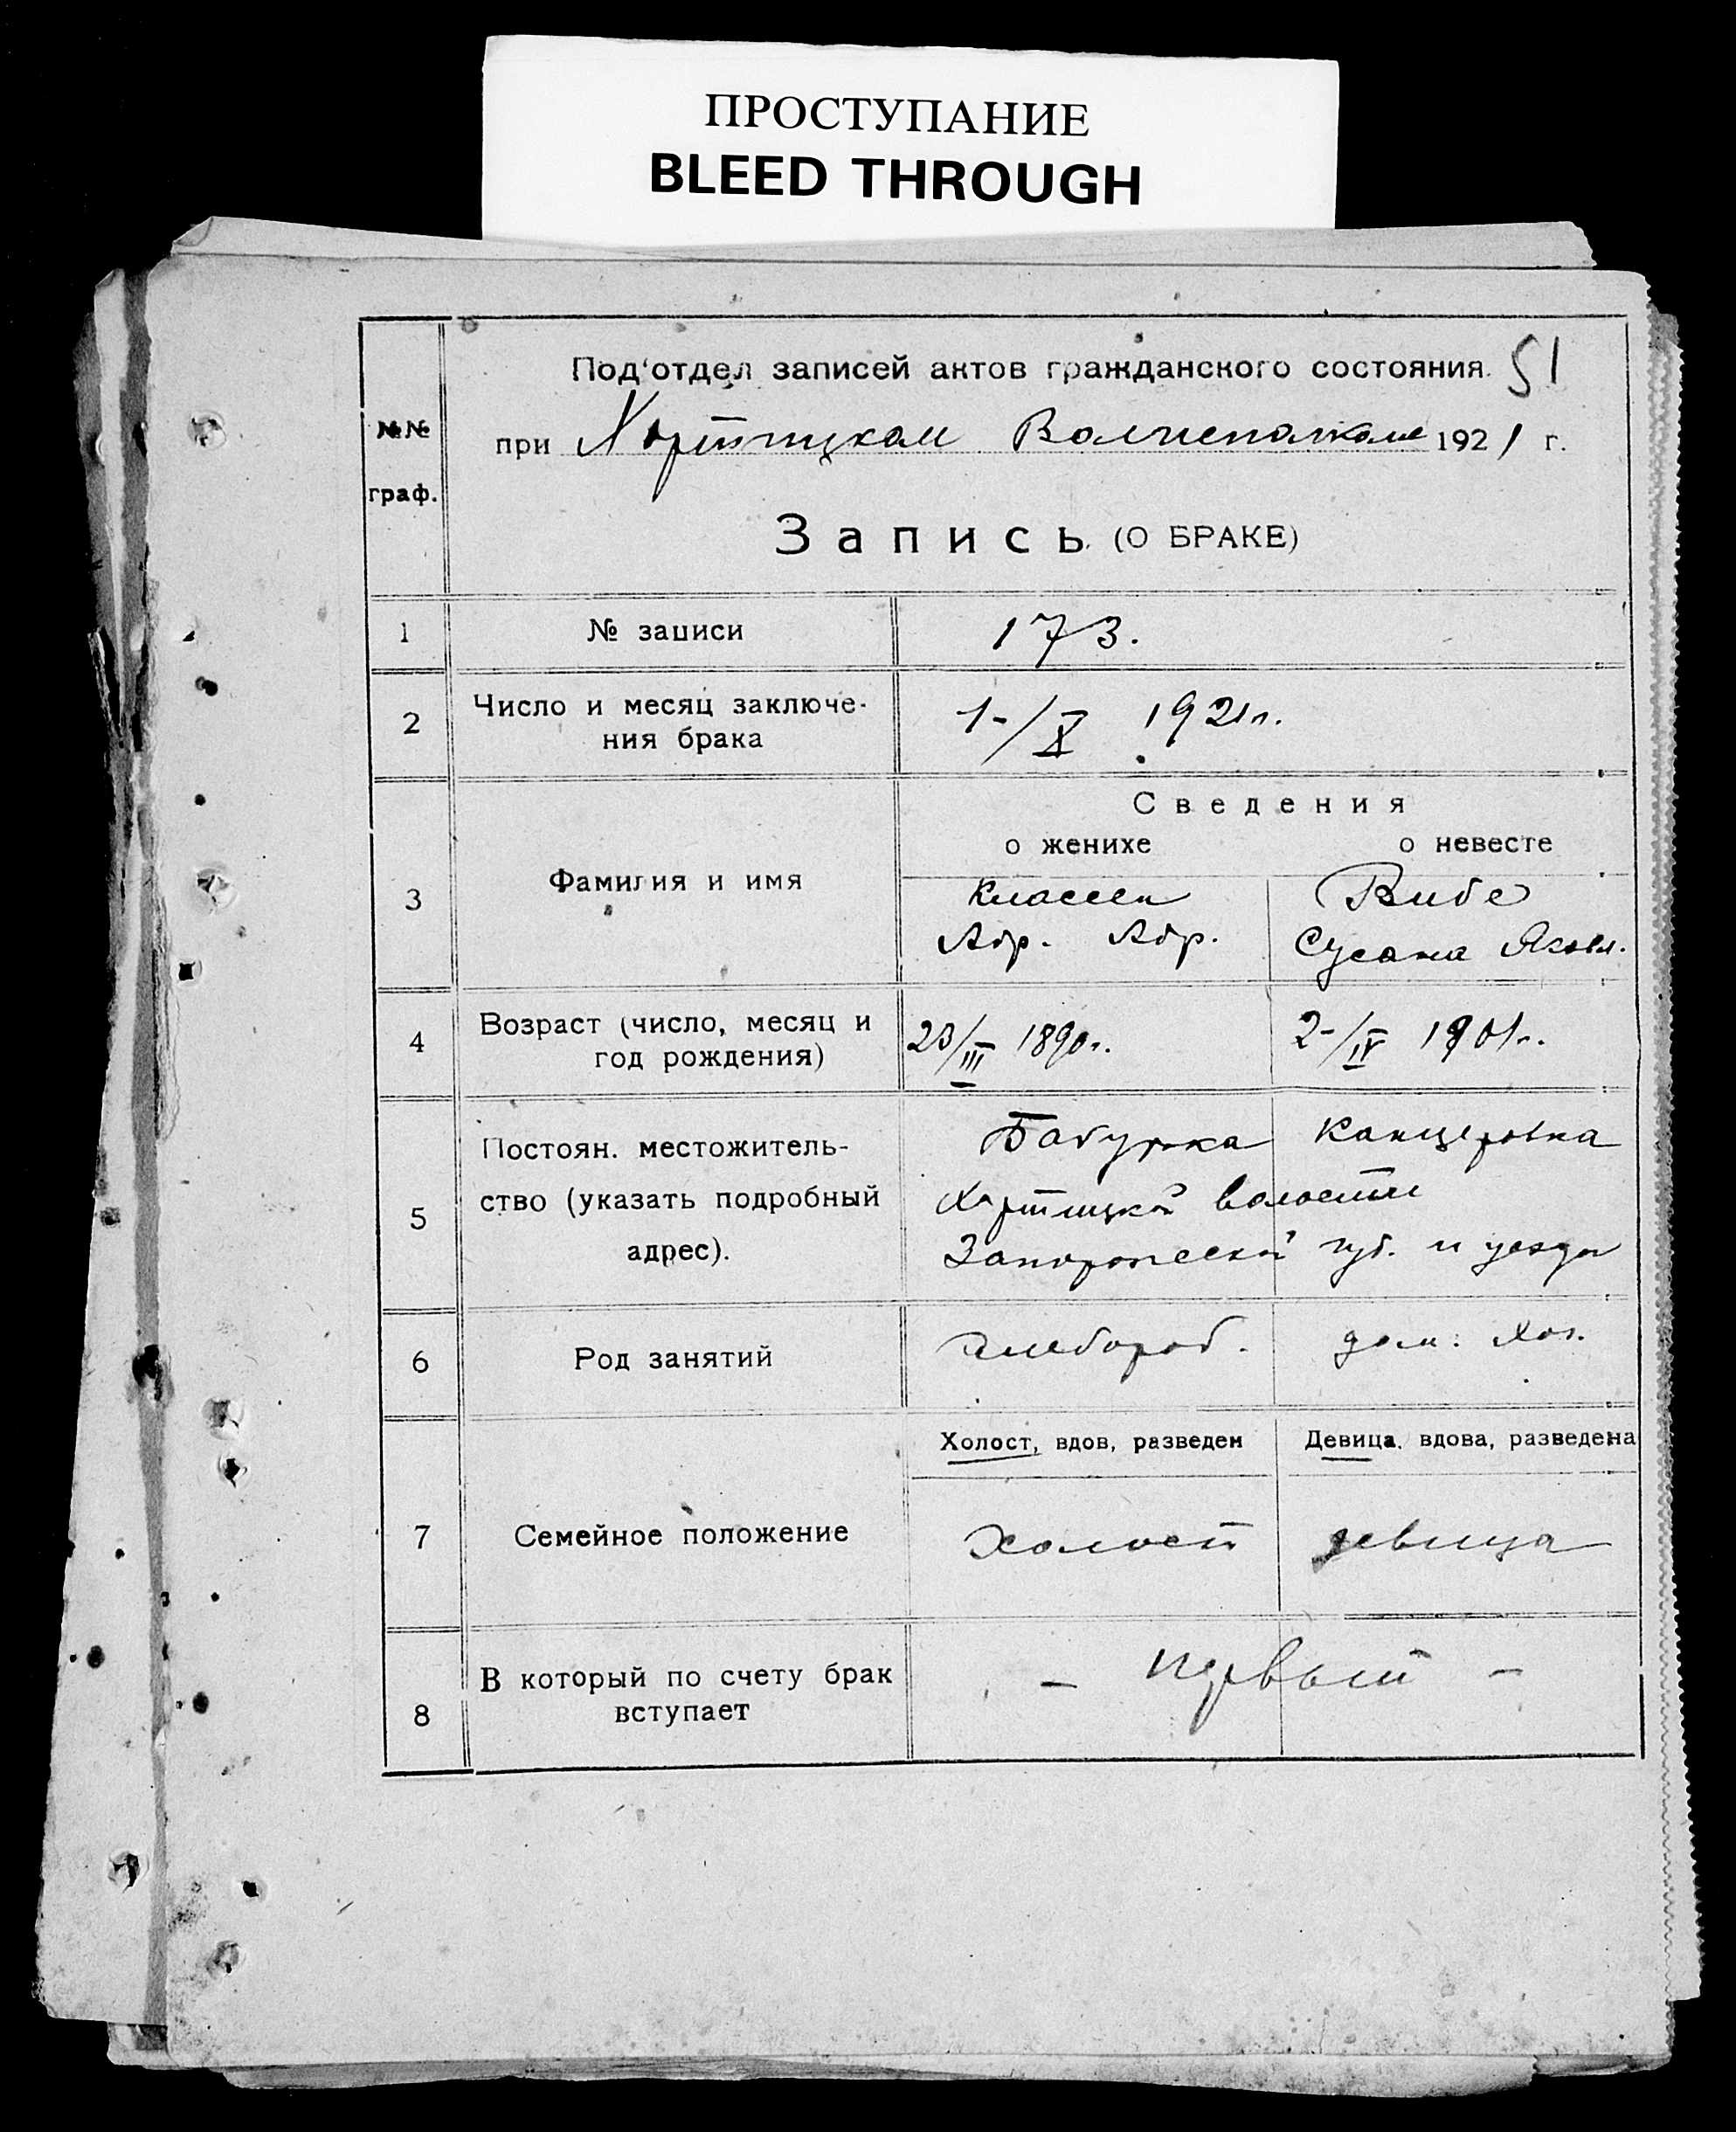 ПРОСТУПАНИЕ
BLEED THROUGH
Под'отдел записей актов гражданского состояния. 51
№№ граф.
при Хортицком Волисполкоме 1921 г.
Запись (О БРАКЕ)
1 № записи 173.
2 Число и месяц заключе-
ния брака 1-/X 1921 г.
Сведения
о женихе о невесте
3 Фамилия и имя Классен Вибе
Абр. Абр. Сусана Яковл.
4 Возраст (число, месяц и
год рождения) 23/III 1890 г. 2-/IV 1901 г.
5 Постоян. местожитель-
ство (указать подробный
адрес).
Бабурка Канцеровка
Хортицкой волости
Запорожской губ. и уезда
6 Род занятий хлебороб. дом. хоз.
Холост, вдов, разведен Девица, вдова, разведена
7 Семейное положение холост девица
8 В который по счету брак
вступает - первый -